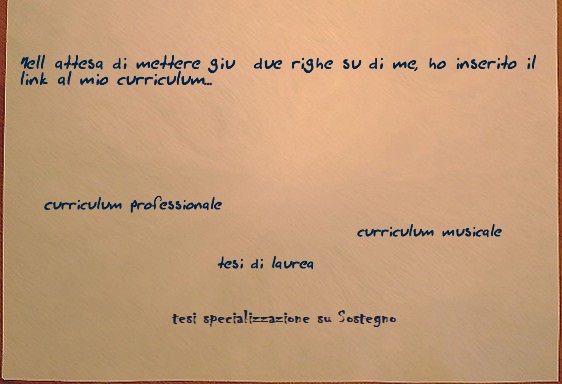 Nell attesa di mettere giu due righe su di me, ho inserito il
link al mio curriculum...
curriculum professionale
curriculum musicale
tesi di laurea
tesi specializzazione su Sostegno